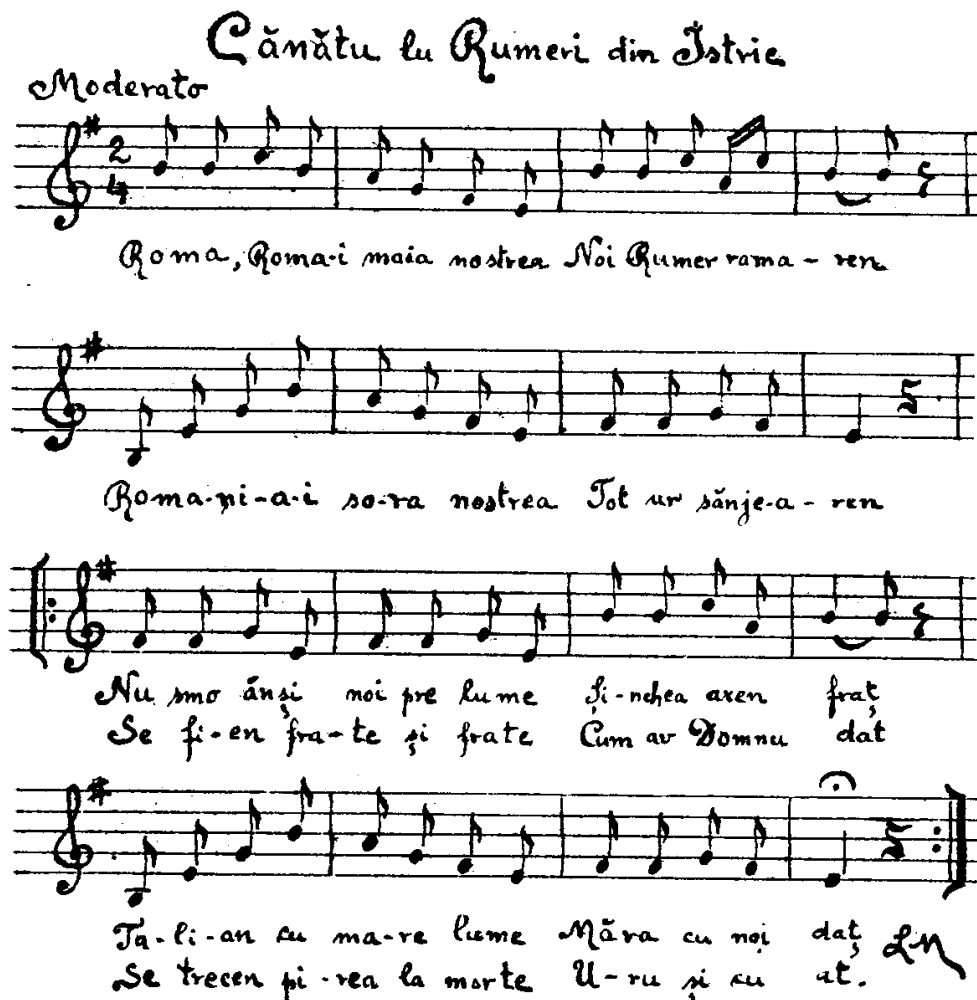 Cănătu lu Rumeri din Istrie
Moderato
2
4
Roma, Roma-i maia nostrea Noi Rumer rama-ren
Roma-ni-a-i so-ra nostrea Tot ur sănje-a-ren
Nu smo ănși noi pre lume Și-nchea aren fraț
Se fi-en fra-te și frate Cum av Domnu dat
Ta-li-an cu ma-re lume Măra cu noi daț
Se trecen pi-rea la morte U-ru și cu at.
LM